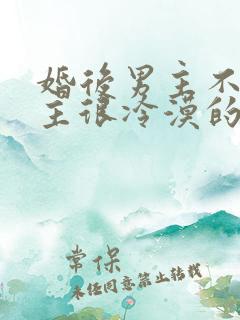 婚后男主不
主很冷漠的
常保
未经同意禁止转载